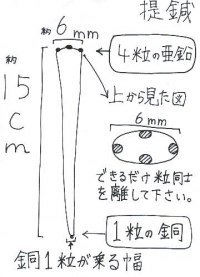 提鍼
約 6 mm
4粒の亜鉛
上から見た図
約 15 cm
6 mm
できるだけ粒同士
を離して下さい。
1粒の銅
銅1粒が乗る幅